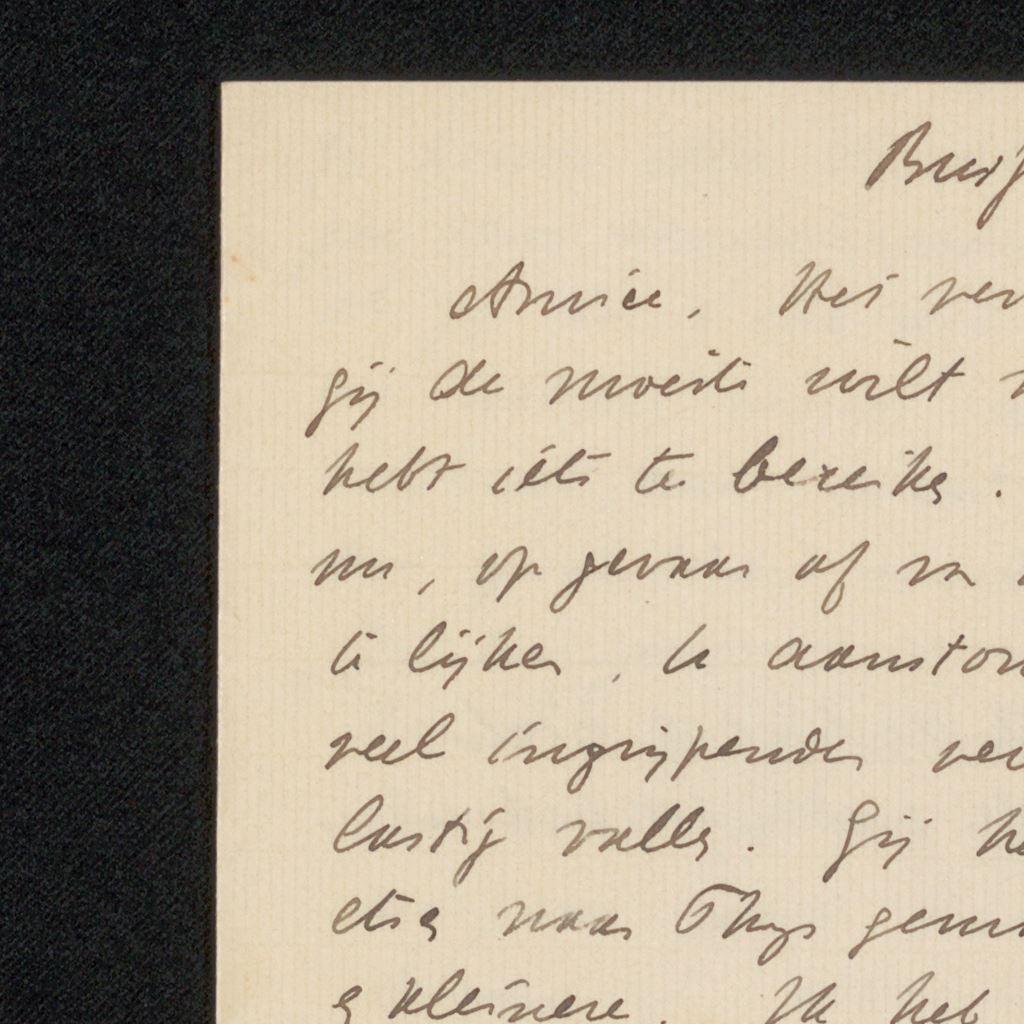 Amice, Het ver
gij de moeite wilt
hebt iets te bereike.
nu, op gevaar af van
te lijken, te aanston
veel ingrijpender ver
lastig valle. Gij he
etse naar Thijs
& kleinere. Ik heb